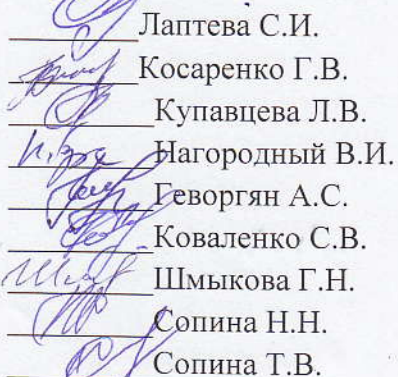 Лаптева С.И.
Косаренко Г.В.
Купавцева Л.В.
Нагородный В.И.
Геворгян А.С.
Коваленко С.В.
Шмыкова Г.Н.
Сопина Н.Н.
Сопина Т.В.